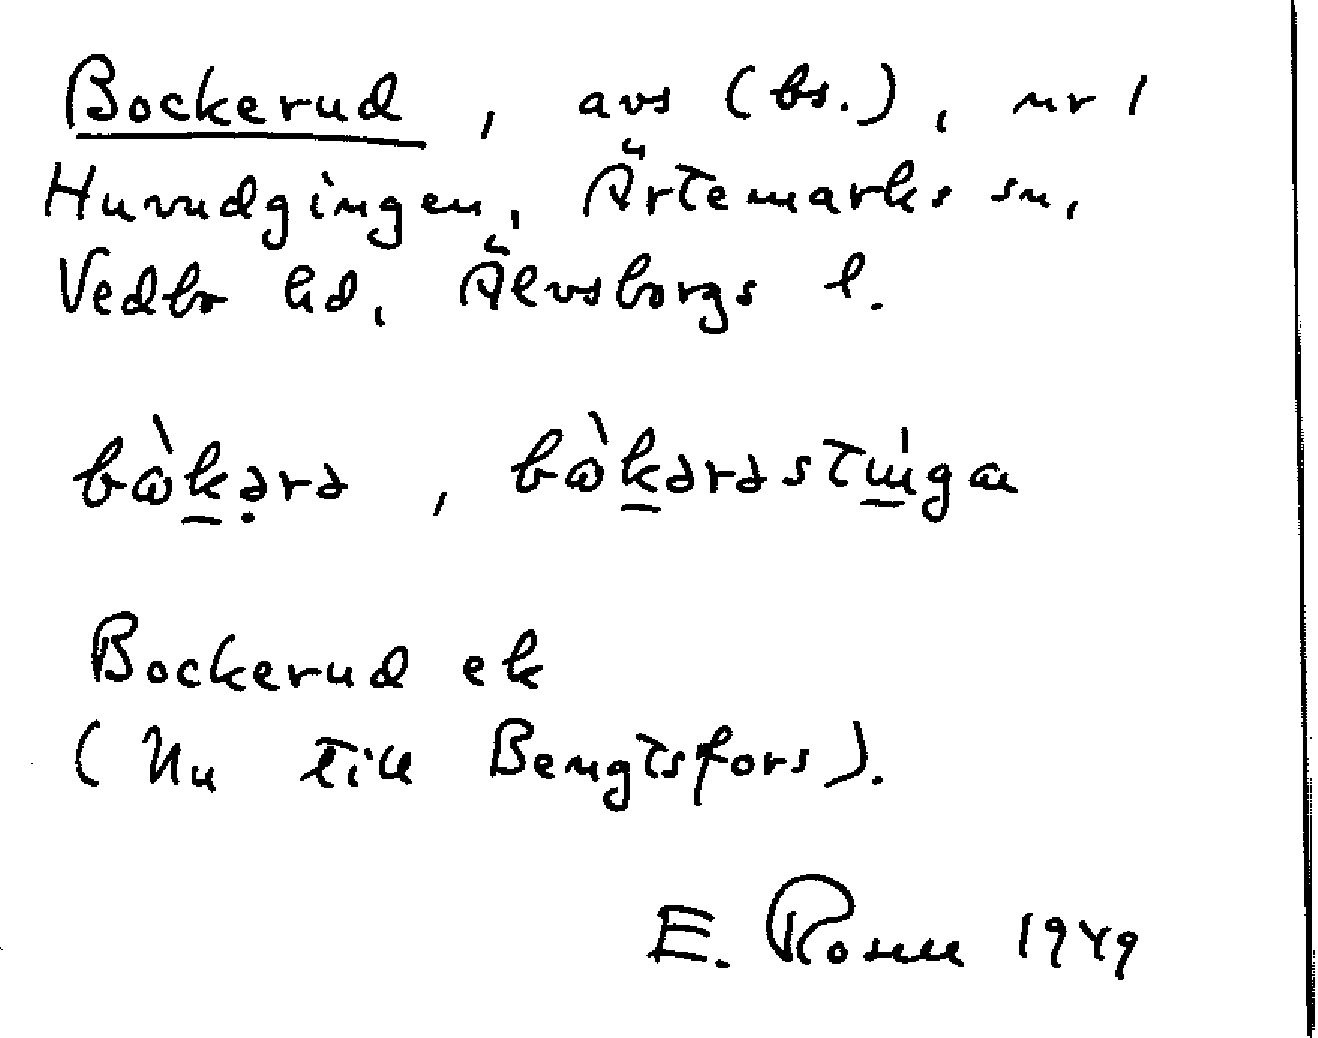 Bockerud, avs (bs.), nr 1
Huvudgingen, Ärtemarks sn,
Vedbo hd, Älvsborgs l.
bὼk̠ə̣rə, bὼk̠ərəstu̠i̇ga
Bockerud ek
(Nu till Bengtsfors).
E. Rosell 1949